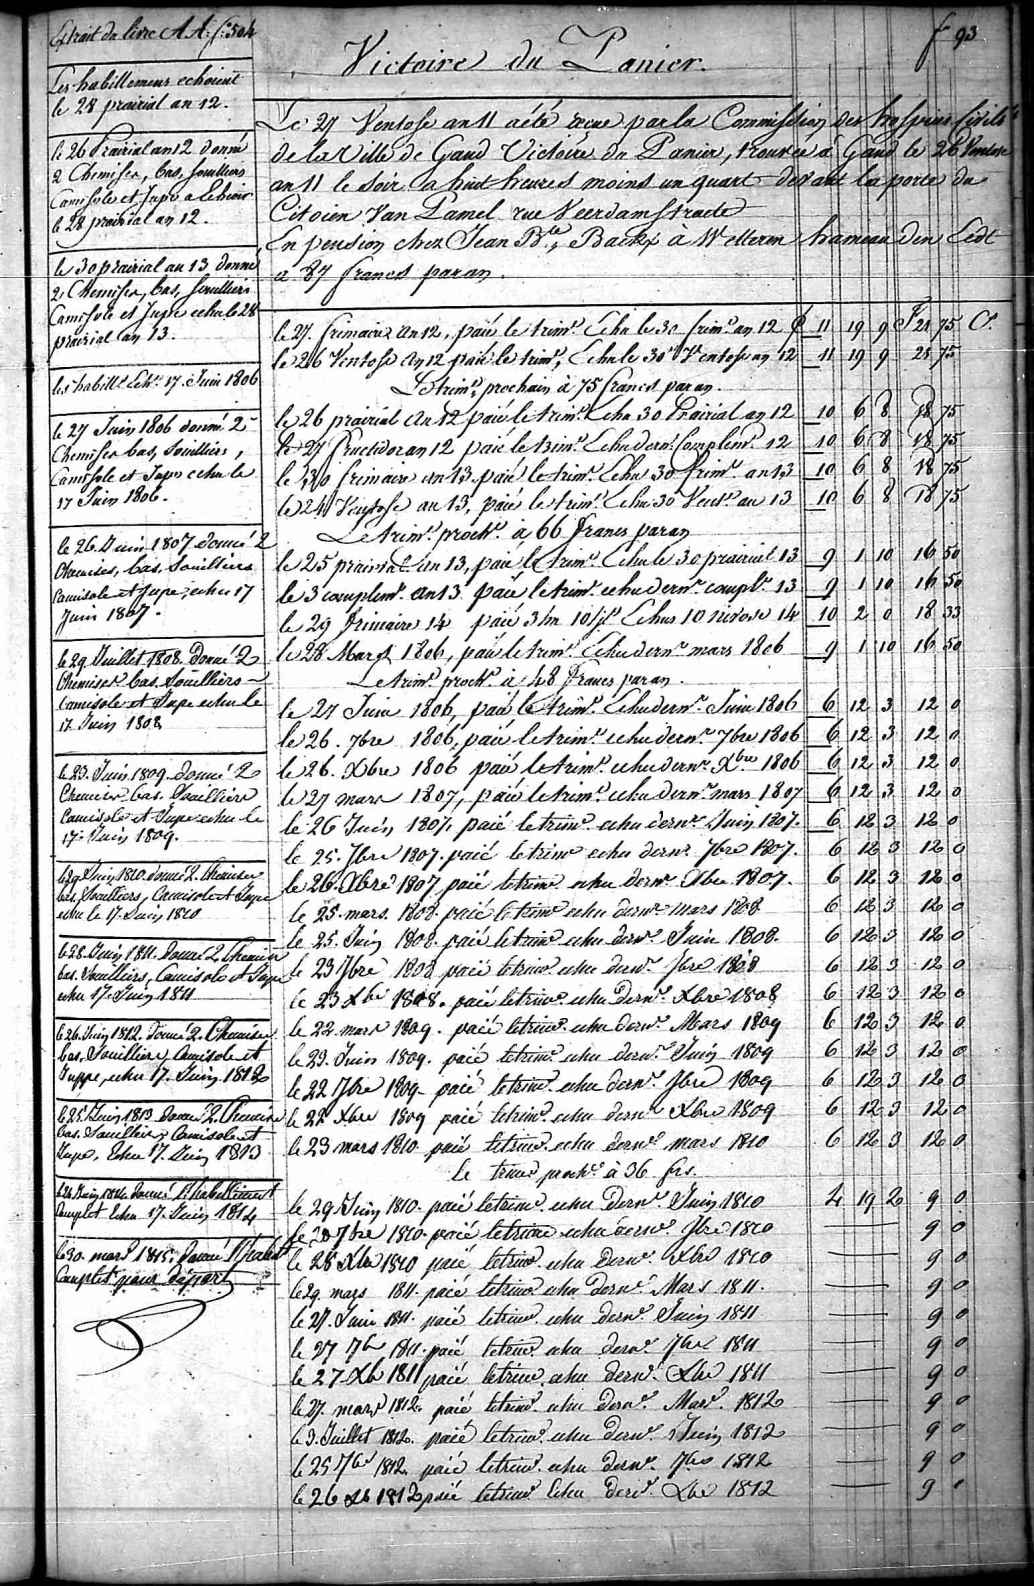 Extrait du livre AA. f.° 504
f 93
Victoire du Panier.
Les habillemens echoient
le 28 prairial an 12.
le 26 Prairial an 12 donné
2 Chemises, bas, souilliers
Camisole et Jupe
le 28 prairial an 12.
le 30 prairial an 13 donné
2 Chemises, bas, souilliers
Camisole et Jupe echu le 28
prairial an 13.
les habill.s Ech. 17 Juin 1806
le 27 Juin 1806 donné 2
Chemises bas, souilliers,
Camisole et Jupe echu le
17 Juin 1806.
le 26 Juin 1807 donné 2
Chemises, bas, souilliers
Camisole et Jupe, echu 17
Juin 1807.
le 29 Juillet 1808. Donné 2
Chemises bas. Souilliers
Camisole et Jupe echu le
17 Juin 1808
le 23. Juin 1809. donné 2
Chemises bas. Souilliers
Camisole et Jupe echu le
17. Juin 1809.
le 29 Juin 1810. donné 2. Chemises
bas, Souilliers, Camisole et Jupe
echu le 17. Juin 1810
le 28. Juin 1811. donné 2. Chemises
bas. Souilliers, Camisole et Jupe
echu 17. Juin 1811
le 26. Juin 1812. donné 2. Chemises
bas, Souilliers, Camisole et
Juppe, echu 17. Juin 1812
le 25. Juin 1813 donné 2. Chemises
bas. Souilliers, Camisole et
Jupe, Echu 17. Juin 1813
Juin 1814. donné l'habillement
Complet Echu 17. Juin 1814
le 30. mars 1815. donné l'habil.t
Complet pour départ
Le 27 Ventose an 11 a été recue par la Commission des hospices Civils
de la Ville de Gand Victoire du Panier, trouvée à Gand le 26 Ventose
an 11 le soir a huit heures moins un quart devant la porte du
Citoien Van Pamel rue Veerdamstraete
En pension chez Jean B.te Backx à Wetteren hameau den Eede
a 87 francs par an.
le 27. frimaire an 12, paié le trim.e Echu le 30 frim.e an 12 £ 11 19 9 F 21 75 C.s
le 26 Ventose an 12 paié le trim.e Echu le 30 Ventose an 12 11 19 9 21 75
Le trim.e prochain à 75 francs par an.
le 26 prairial an 12 paié le trim.e Echu 30 Prairial an 12 10 6 8 18 75
le 27 fructidor an 12 paié le trim.e Echu dern.r Complem.e 12 10 6 8 18 75
le 30 frimaire an 13 paié le trim.e Echu 30 frim.e an 13 10 6 8 18 75
le 24 Ventose an 13, paié le trim.e Echu 30 Vent.e an 13 10 6 8 18 75
Le trim.e proch.n à 66 francs par an
le 25 prairial an 13, paié le trim.e Echu le 30 prairial 13 9 1 10 16 50
le 3 complem.e an 13. paié le trim.e echu dern.r compl.e 13 9 1 10 16 50
le 29 frimaire 14 paié 3 m 10 j.s Echus 10 nivose 14 10 2 0 18 33
le 28 Mars 1806, paié le trim.e Echu dern.r mars 1806 9 1 10 16 50
Le trim.e proch.n à 48 francs par an.
le 27 Juin 1806, paié le trim.e Echu dern.r Juin 1806 6 12 3 12 0
le 26. 7bre 1806, paié le trim.e echu dern.r 7bre 1806 6 12 3 12 0
le 26. Xbre 1806 paié le trim.e echu dern.r Xbre 1806 6 12 3 12 0
le 27 mars 1807, paié le trim.e echu dern.r mars 1807 6 12 3 12 0
le 26 Juin 1807. paié le trim.e echu dern.r Juin 1807. 6 12 3 12 0
le 25. 7bre 1807. paié le trim.e echu dern.r 7bre 1807. 6 12 3 12 0
le 26. Xbre 1807 paié le trim.e echu dern.r Xbre 1807. 6 12 3 12 0
le 25. mars. 1808. paié le trim.e echu dern.r mars 1808 6 12 3 12 0
le 25. Juin 1808. paié le trim.e echu dern.r Juin 1808. 6 12 3 12 0
le 23 7bre 1808 paié le trim.e echu dern.r 7bre 1808 6 12 3 12 0
le 23 Xbre 1808. paié le trim.e echu dern.r Xbre 1808 6 12 3 12 0
le 22. mars 1809. paié le trim.e echu dern.r Mars 1809 6 12 3 12 0
le 23. Juin 1809. paié le trim.e echu dern.r Juin 1809 6 12 3 12 0
le 22 7bre 1809. paié le trim.e echu dern.r 7bre 1809 6 12 3 12 0
le 22 Xbre 1809 paié le trim.e echu dern.r Xbre 1809 6 12 3 12 0
le 23 mars 1810 paié le trim.e echu dern.r mars 1810 6 12 3 12 0
Le trim.e proch.n à 36 frs.
le 29 Juin 1810. paié le trim.e echu dern.r Juin 1810 4 19 2 9 0
le 20 7bre 1810. paié le trim.e echu dern.r 7bre 1810 9 0
le 28 Xbre 1810 paié le trim.e echu dern.r Xbre 1810 9 0
le 29. mars 1811. paié le trim.e echu dern.r Mars 1811. 9 0
le 27. Juin 1811. paié le trim.e echu dern.r Juin 1811 9 0
le 27 7br 1811. paié le trim.e echu dern.r 7bre 1811 9 0
le 27 Xb 1811 paié le trim.e echu dern.r Xbre 1811 9 0
le 27. mars 1812. paié le trim.e echu dern.r Mars. 1812 9 0
le 3. Juillet 1812. paié le trim.e echu dern.r Juin 1812 9 0
le 25 7br 1812. paié le trim.e echu dern.r 7bre 1812 9 0
le 26 Xb 1812 paié le trim.e Echu dern.r Xbre 1812 9 0